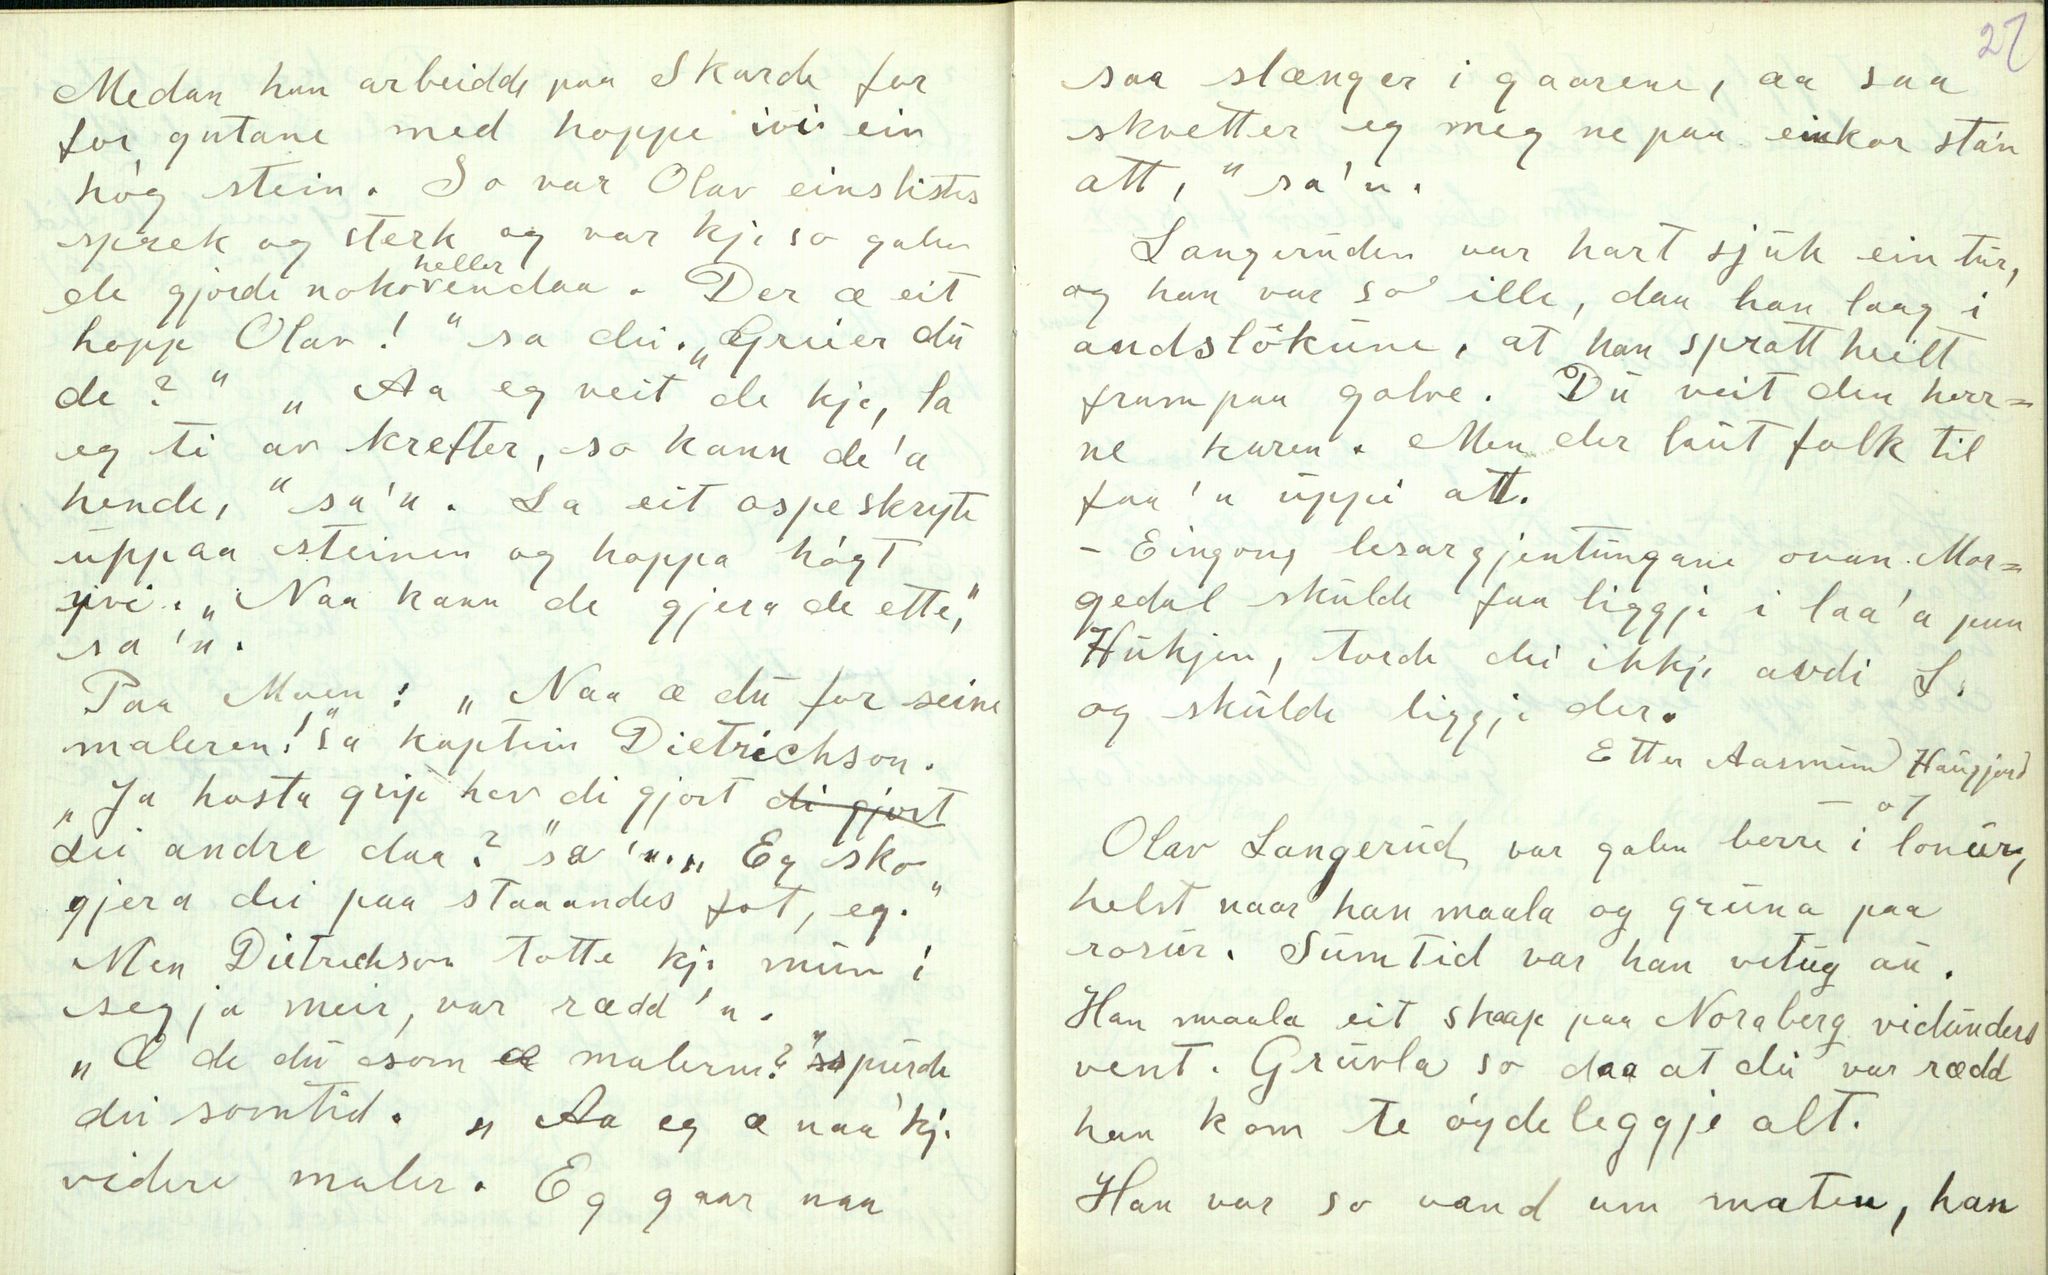 Medan han arbeidde paa Skarde for
for gutane med hoppe ivi ein
høg stein. So var Olav einslistes
sprek og sterk og var kje so galen
de gjorde noko heller vendaa. Der æ eit
hopp Olav!" sa dei. „Greier du
de?" „Aa eg veit de kje, ta
eg ti av krefter, so kann de 'a
hende," sa'n. La eit ospeskryte
uppaa steinen og hoppa høgt
yvi. „Naa kann de gjera de ette,"
sa'n.
Paa Moen: „Naa æ du for seine
maleren!" sa kaptein Dietrichson.
„Ja hosta grip hev di gjort di gjort
dei andre daa?" sa'n. „Eg sko
gjera dei paa staaandes fot, eg."
Men Dietrichson totte kje mun i
segja meir, var rædd 'n.
„Æ de du som æ maleren?" spurde
dei somtid. „Aa eg æ naa 'kje
videre maler. Eg gaar naa
27
saa slænger i gaarene, aa saa
skvetter eg meg ne paa einkor stán
att," sa'n.
Langeruden var hart sjuk ein tur,
og han var so ille, daa han laag i
andslökune, at han spratt heilt
fram paa golve. Du veit den herr=
ne karen. Men der laut folk til
faa 'n uppi att.
- Eingong lesargjentungane ovan Mor=
gedal skulde faa liggje i laa'a paa
Hukjen, torde dei ikkje avdi L.
og skulde liggje der.
Etter Aasmund Haugjord
- o7
Olav Langerud var galen berre i lonur,
helst naar han maala og gruna paa
rosur. Sumtid var han vitug au.
Han maala eit skaap paa Noraberg vidunders
vent. Gruvla so daa at dei var rædd
han kom te øydeleggje alt.
Han var so vand um maten, han